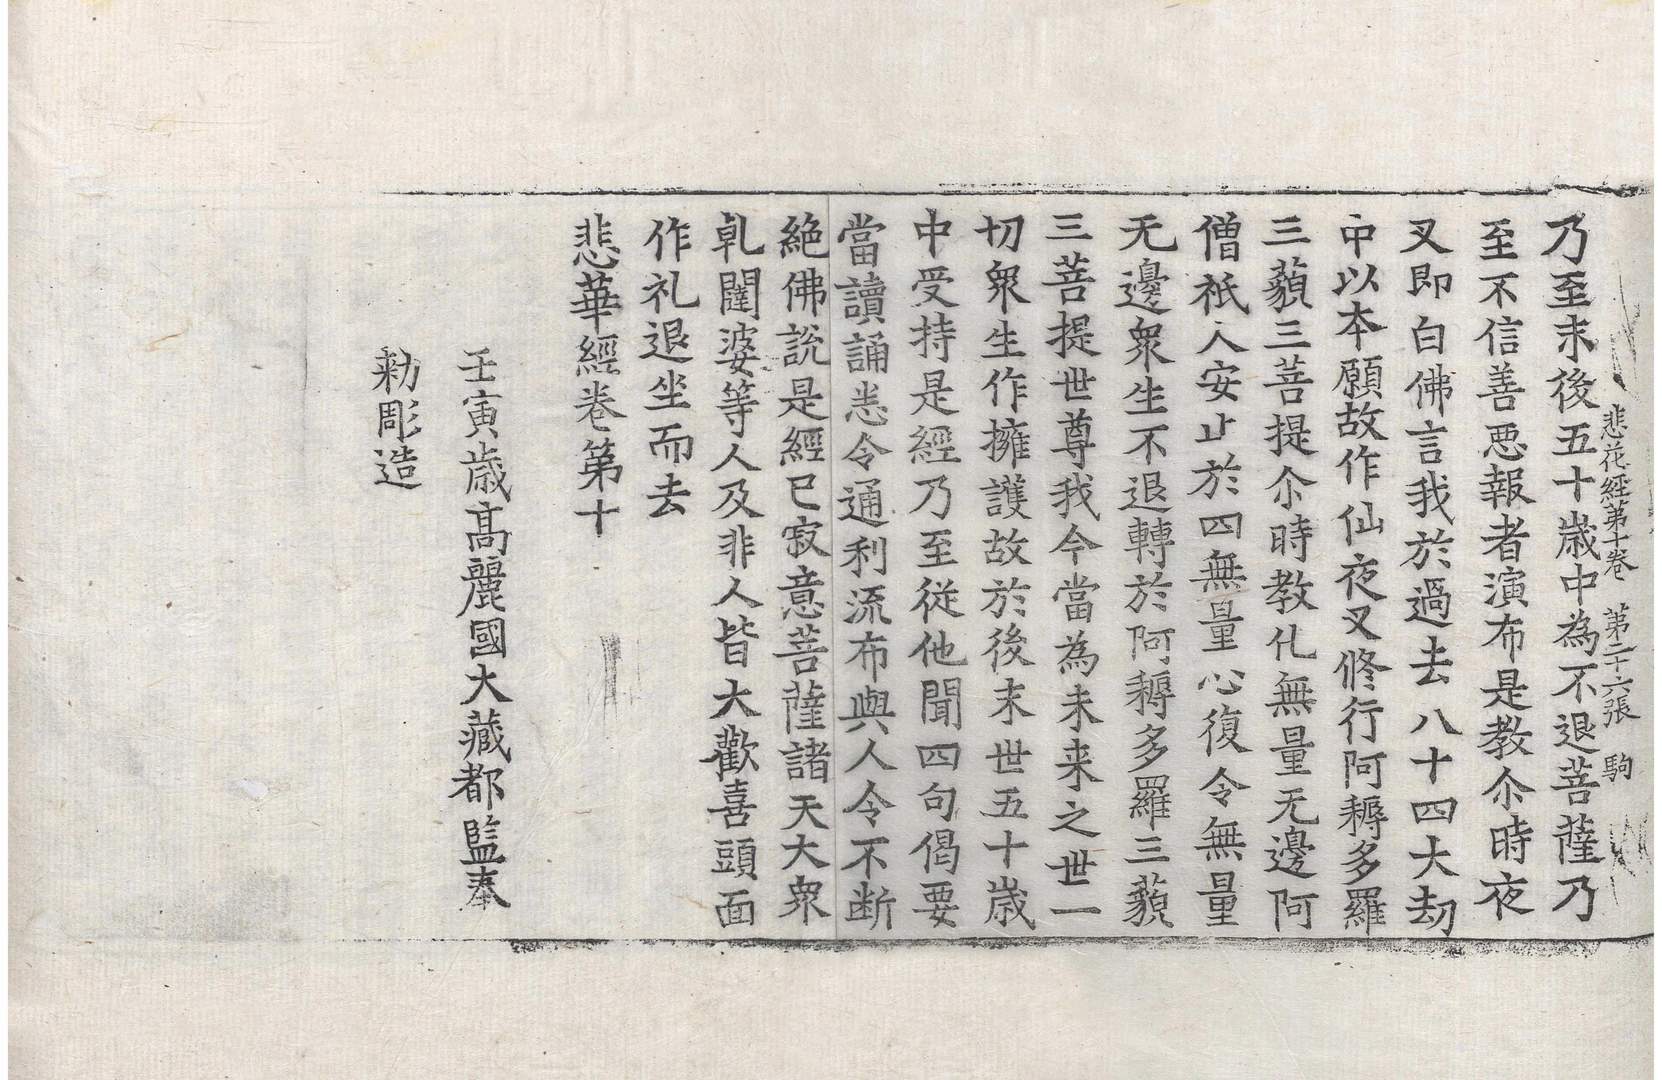 悲花経第十卷 第二十六張 駒
乃至末後五十歳中為不退菩薩乃
至不信善惡報者演布是教尒時夜
叉即白佛言我於過去八十四大劫
中以本願故作仙夜叉修行阿耨多羅
三藐三菩提尒時教化無量无邊阿
僧祇人安止於四無量心復令無量
无邊衆生不退轉於阿耨多羅三藐
三菩提世尊我今當為未来之世一
切衆生作擁護故於後末世五十歳
中受持是經乃至従他聞四句偈要
當讀誦悉令通利流布與人令不断
絶佛説是經已寂意菩薩諸天大衆
乹闥婆等人及非人皆大歡喜頭面
作礼退坐而去
悲華經卷第十
壬寅歳髙麗國大藏都監奉
勅彫造